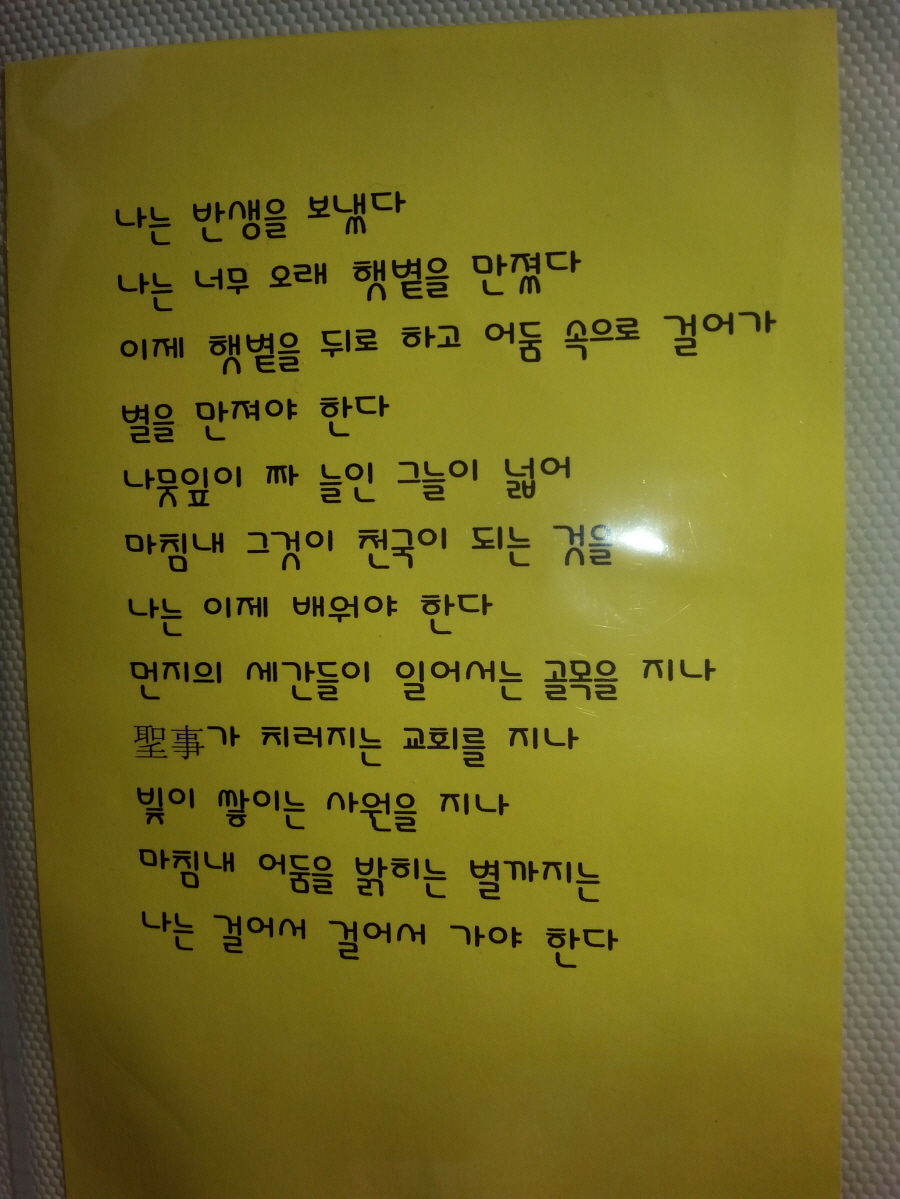 나는 반생을 보냈다
나는 너무 오래 햇볕을 만졌다
이제 햇볕을 뒤로 하고 어둠 속으로 걸어가
별을 만져야 한다
나뭇잎이 짜 늘인 그늘이 넓어
마침내 그것이 천국이 되는 것을
나는 이제 배워야 한다
먼지의 세간들이 일어서는 골목을 지나
聖事가 치러지는 교회를 지나
빛이 쌓이는 사원을 지나
마침내 어둠을 밝히는 별까지는
나는 걸어서 걸어서 가야 한다